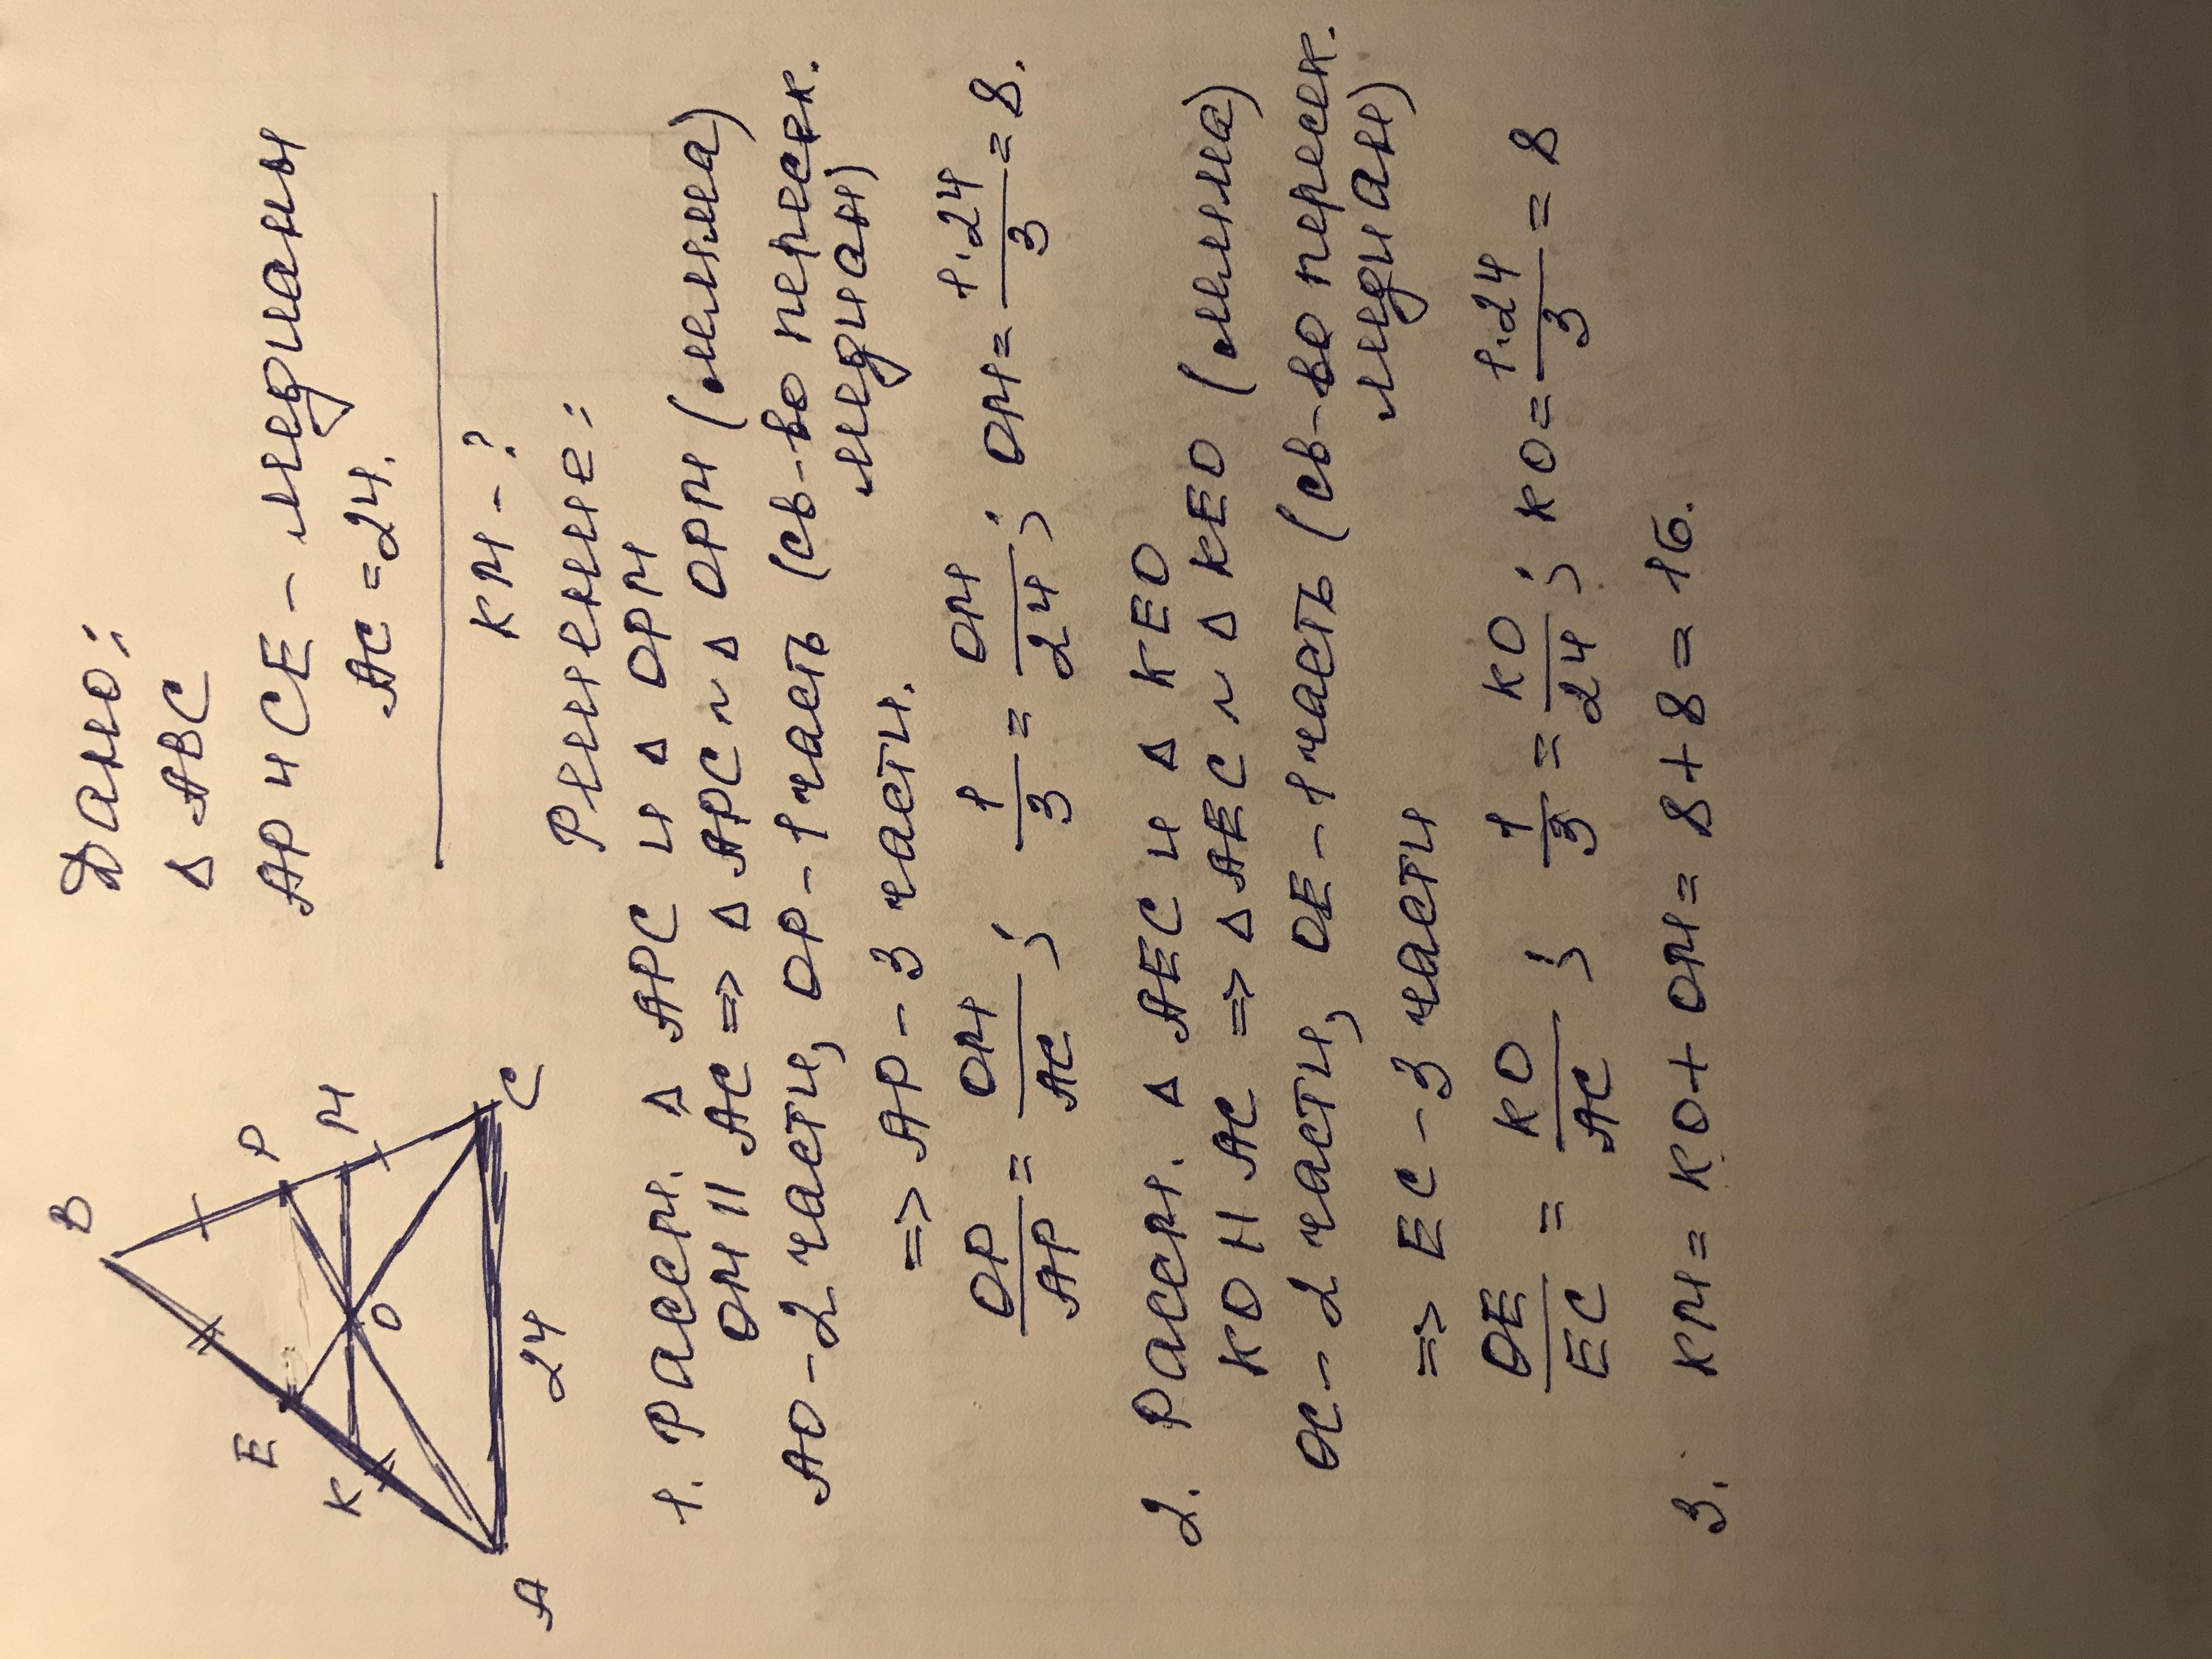 Дано:
Δ ABC
AP и CE - медианы
AC = 24.
KM - ?
B
P
M
E
K
O
A
24
C
Решение:
1. Рассм. Δ APC и Δ OPM
OM || AC => Δ APC ~ Δ OPM (лемма)
AO - 2 части, OP - 1 часть (св-во пересек.
медиан)
=> AP - 3 части.
OP/AP = OM/AC; 1/3 = OM/24; OM = 1·24/3 = 8.
2. Рассм. Δ AEC и Δ KEO
KO || AC => Δ AEC ~ Δ KEO (лемма)
OC - 2 части, OE - 1 часть (св-во пересек.
медиан)
=> EC - 3 части
OE/EC = KO/AC; 1/3 = KO/24; KO = 1·24/3 = 8
3. KM = KO + OM = 8 + 8 = 16.